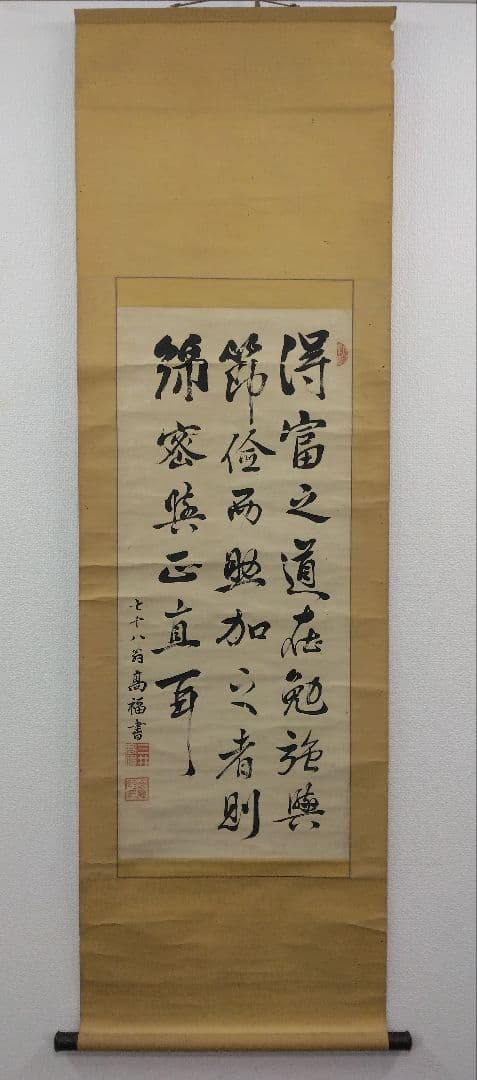 得富之道在勉強與
節儉而助加之者則
綿密與正直耳
七十八翁高福書